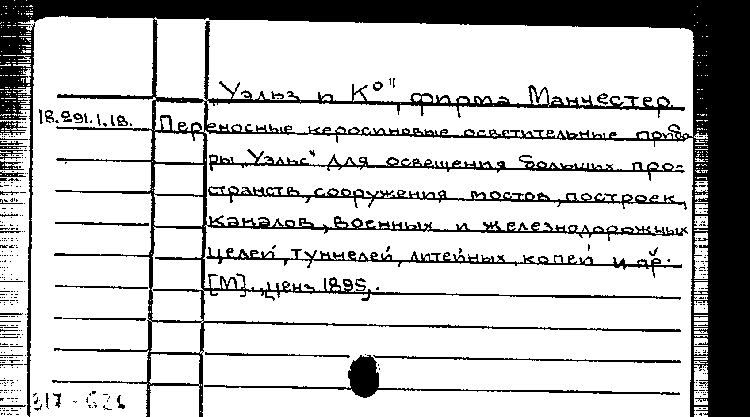 „Уэльз и К⁰", фирма. Манчестер
18.291.1.18. Переносные керосиновые осветительные прибо-
ры „Уэльс" для освещения больших про-
странств, сооружения мостов, построек,
каналов, военных и железнодорожных
целей, туннелей, литейных, копей и др.
[М]., ценз. 1895,.
317-626